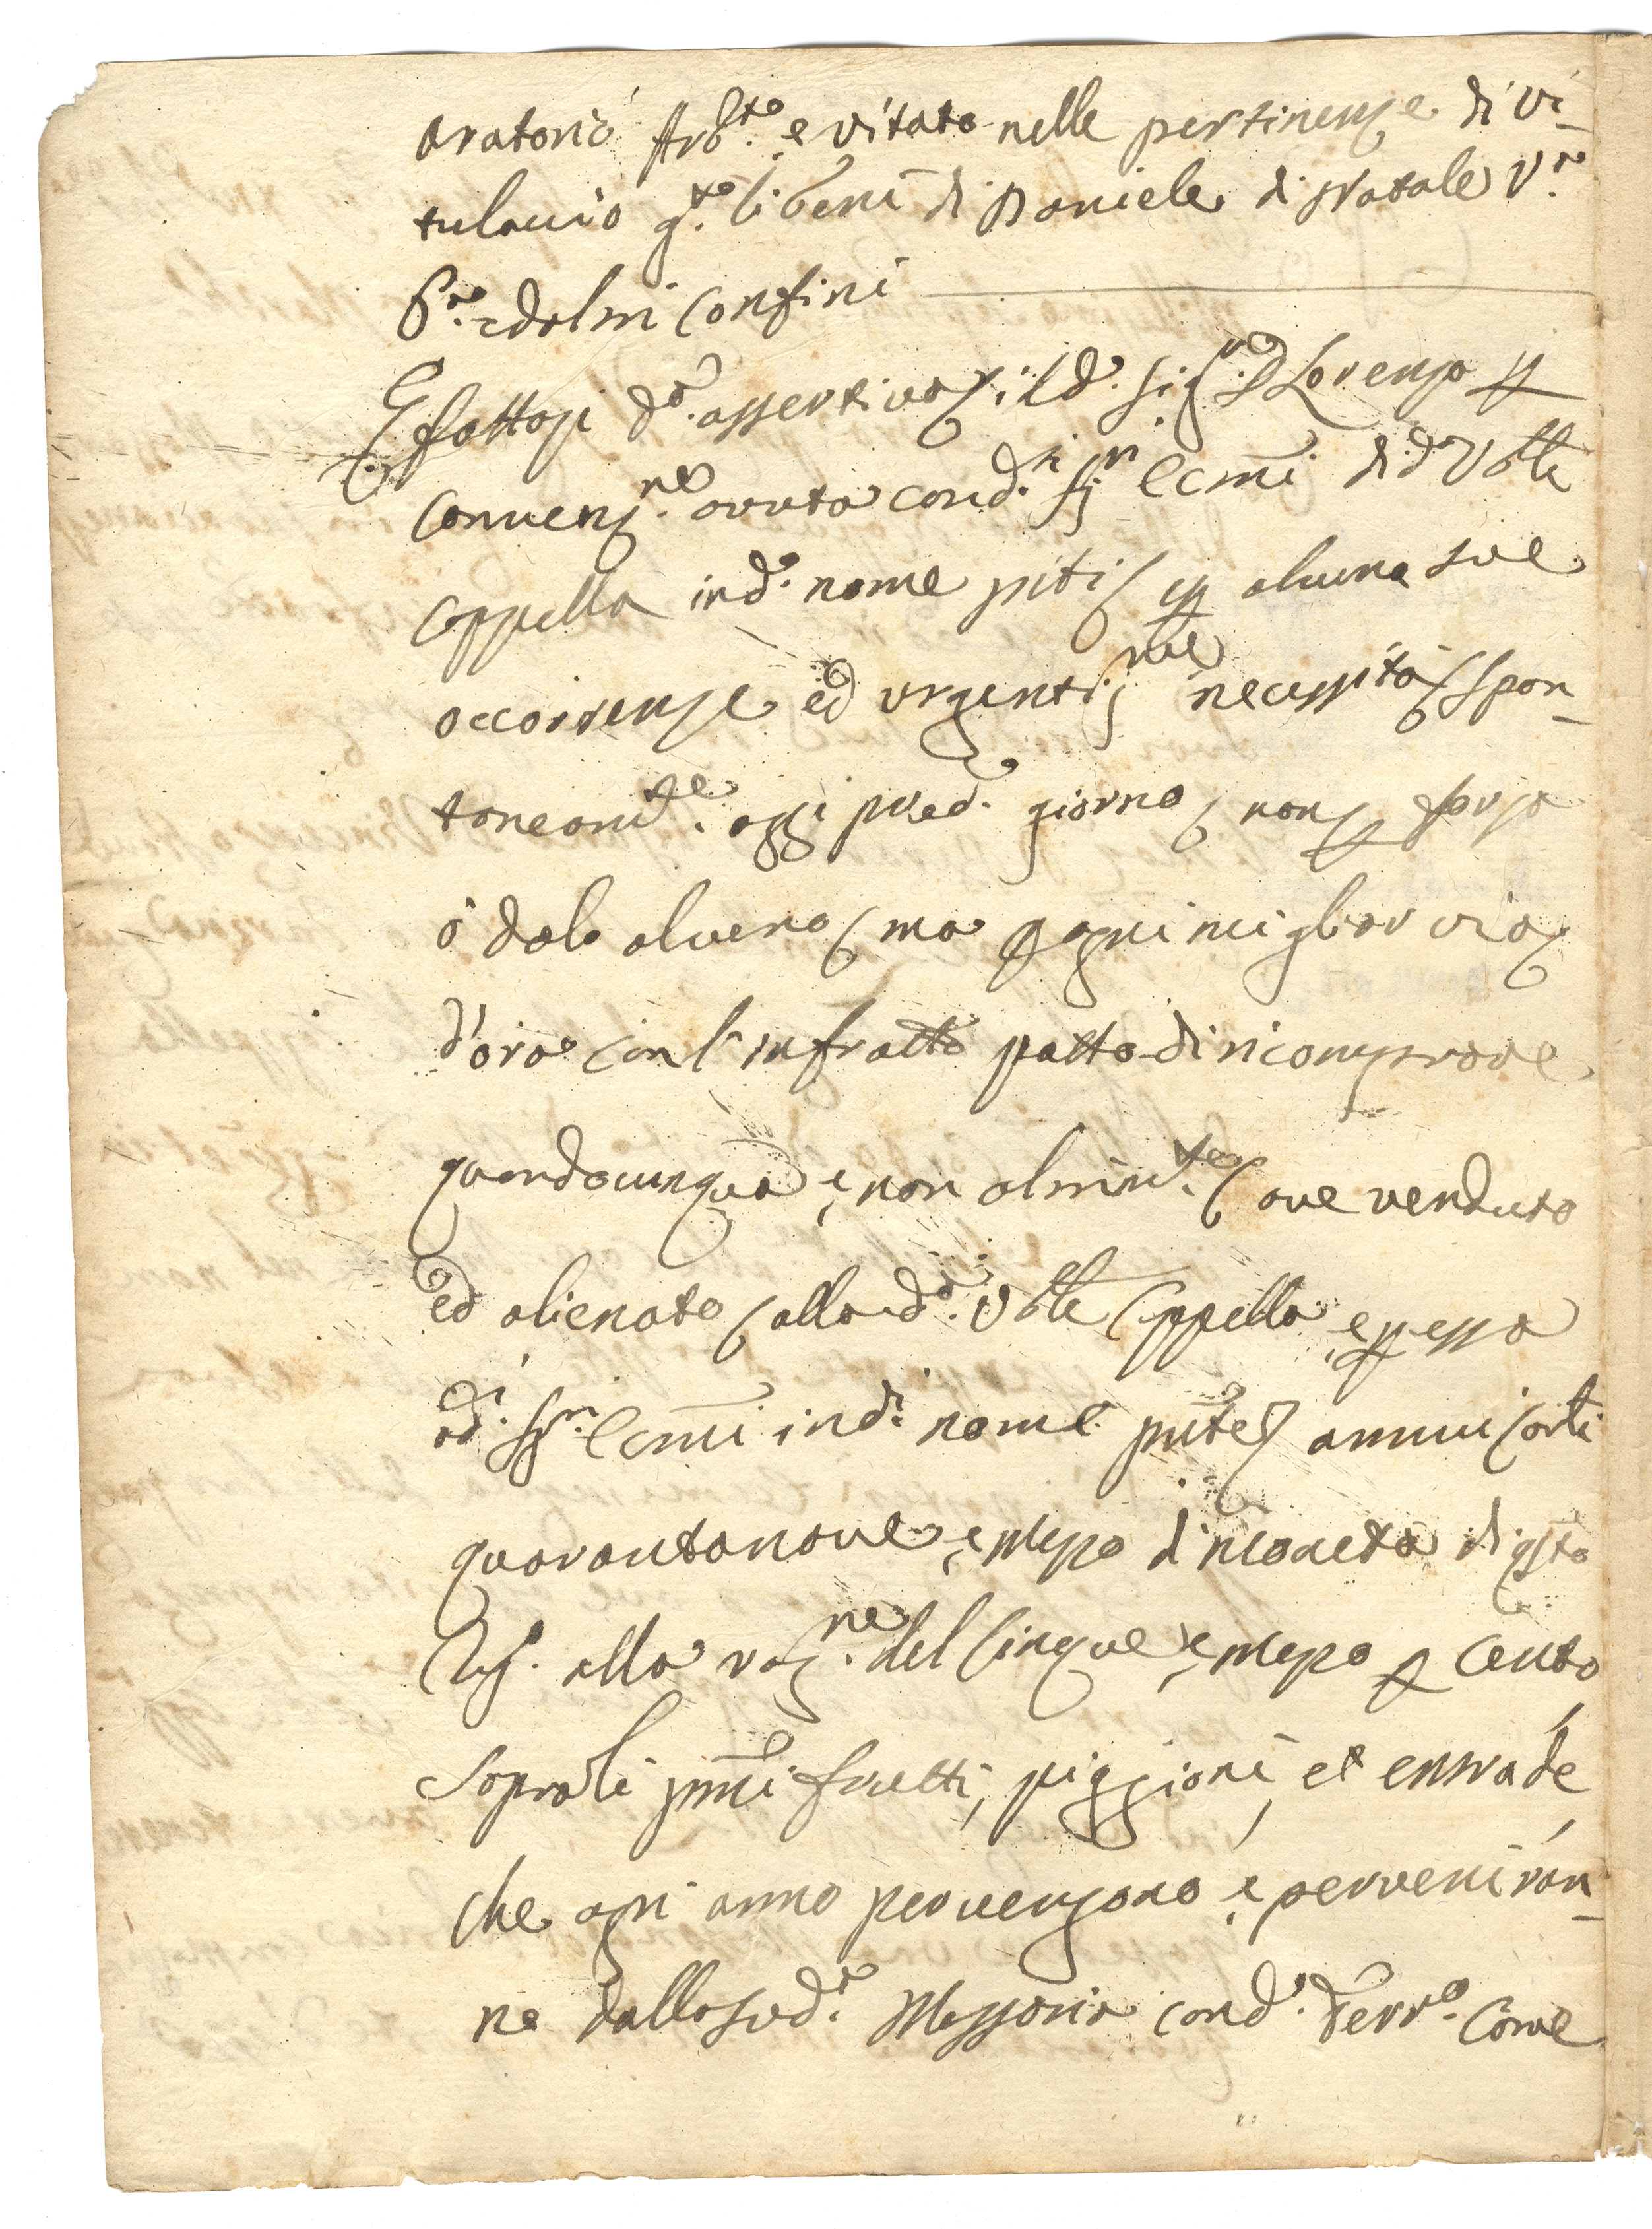 aratorio Arb.to e vitato nelle pertinenze di Vi-
tulaccio q.to li beni di Daniele di Natale V.o
S.o ed altri confini
E fattasi d.a assertiva, il d. Sig.r D. Lorenzo p
convenz.ne avuta con d.i SS.ri Ecmi di d.a Ven.le
Cappella in d.o nome p alcune sue
occorrenze ed urgentis.me necessità, spon-
taneam.te oggi pred.o giorno, non p forza
ò dolo alcuno, ma p ogni miglior via,
d'ora con l'infratto patto di ricomprare
quandocunque, e non altrim.te, ave venduto
ed alienato, alla d.a Ven.le Cappella, e p essa
a d.i SS.ri Ecmi in d.o nome pnte, annui carlini
quarantanove, e mezzo di moneta di q.sto
Reg.o alla rag.ne del cinque, e mezzo p cento,
sopra li pmi frutti, piggioni, et entrade,
che ogni anno pervengono, e perveniran-
no dalla sud.a Massaria con d.o Terr.o come